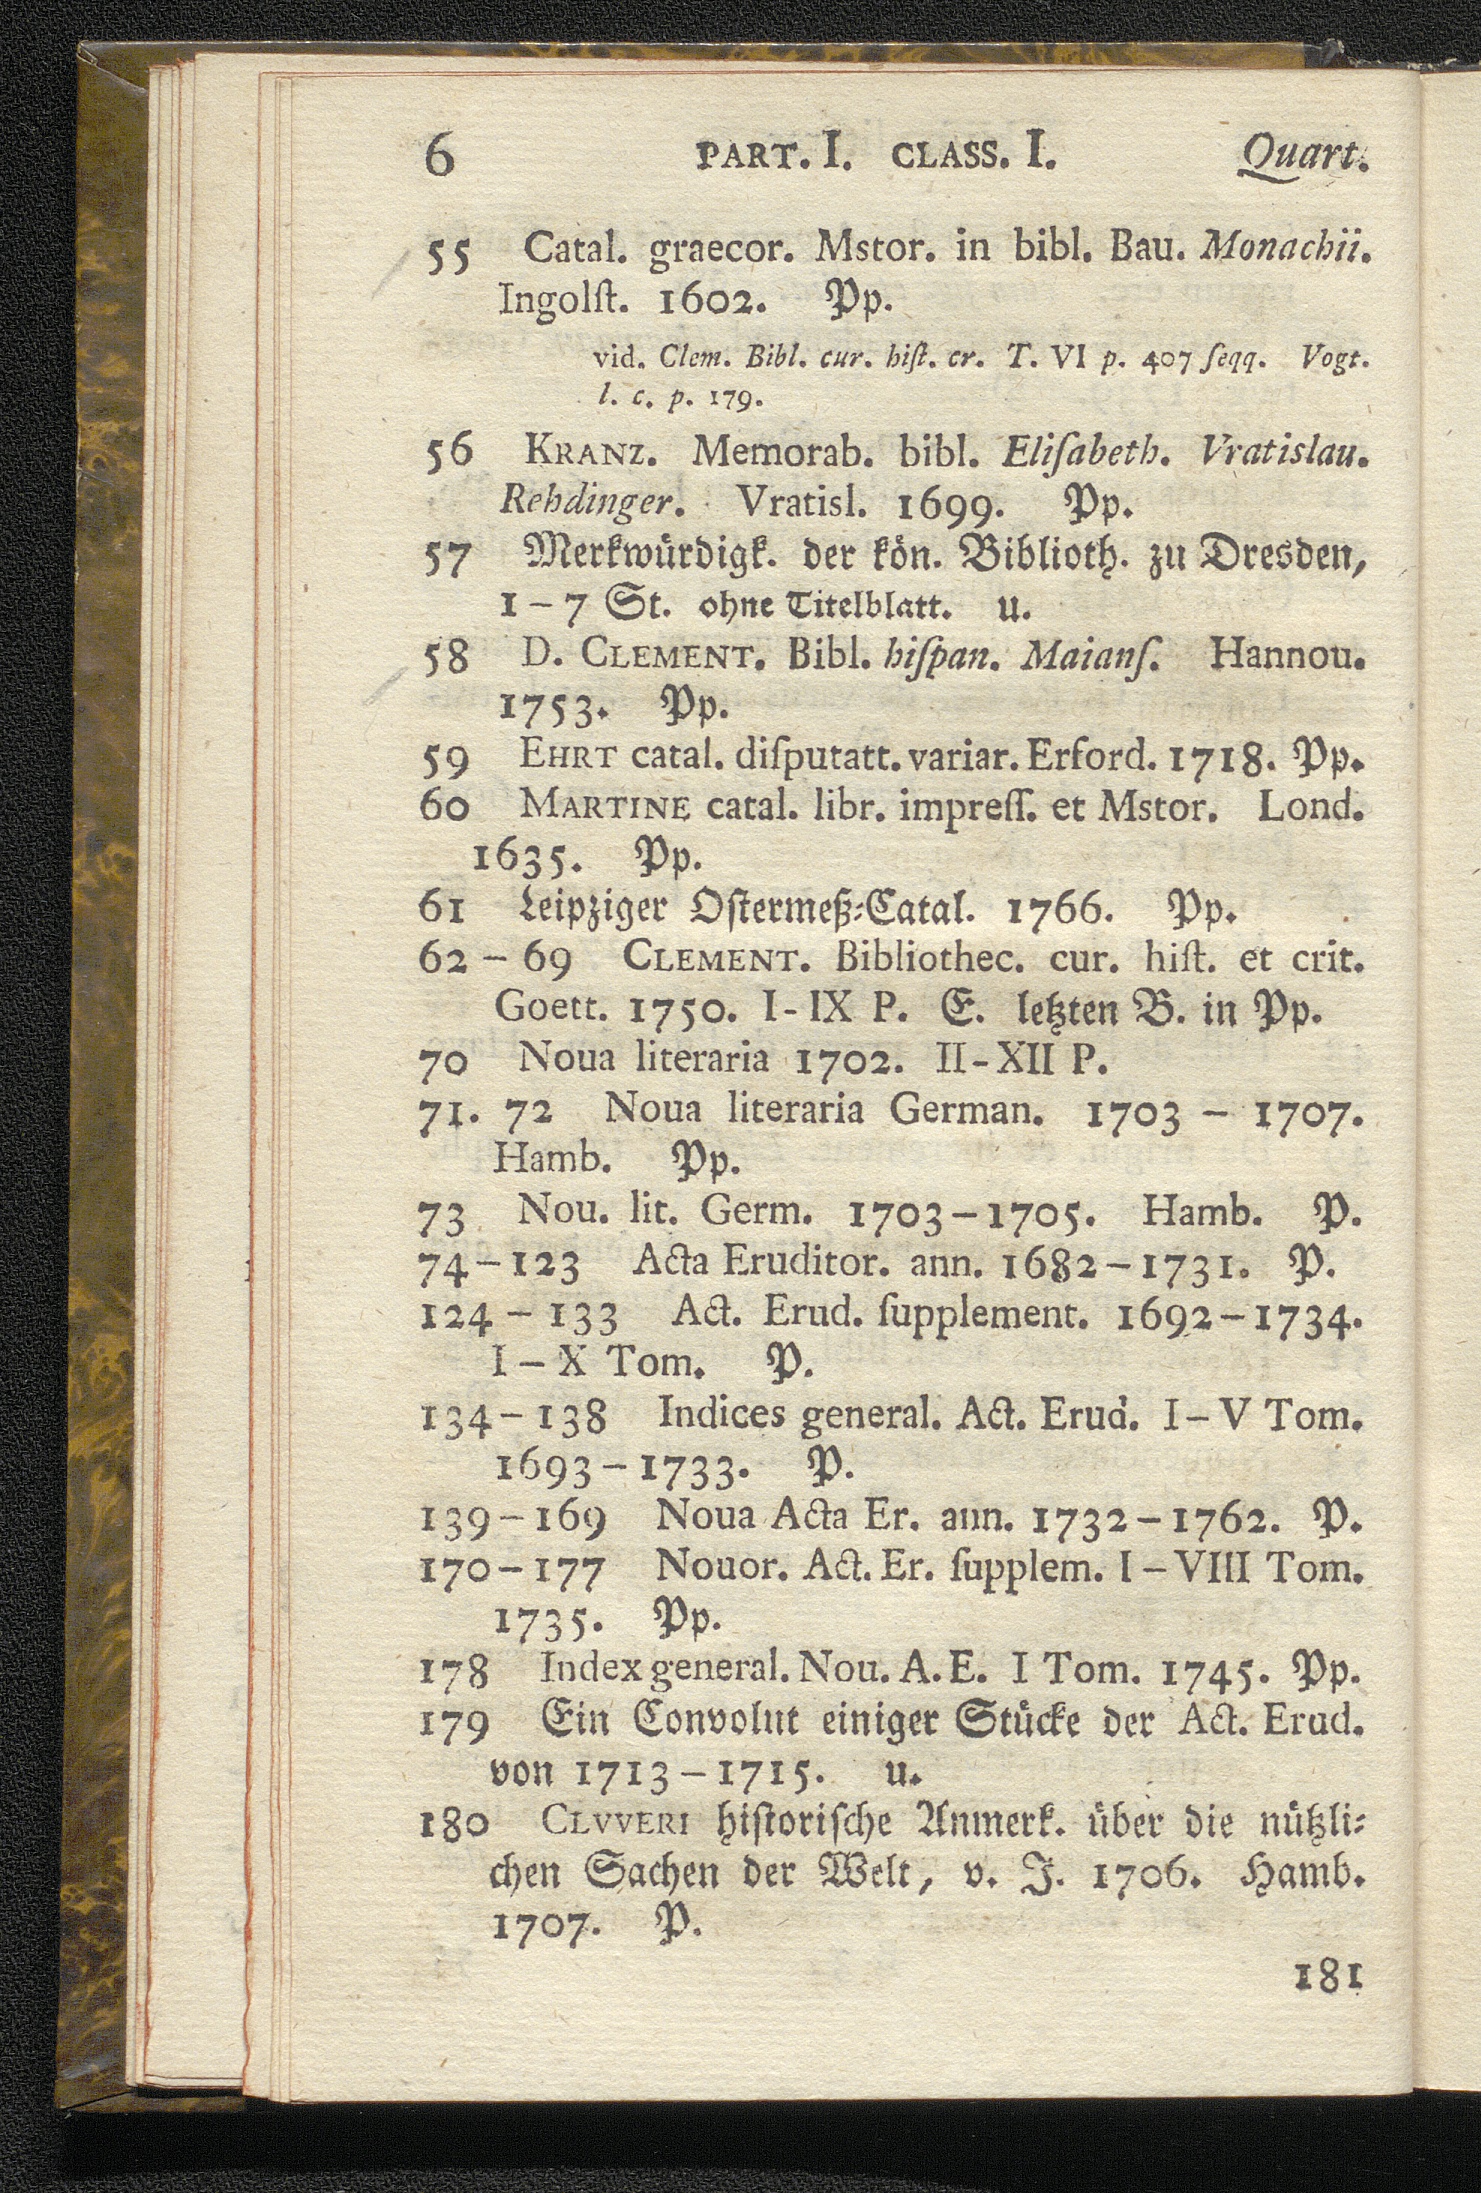 6 PART. I. CLASS. I. Quart.
55 Catal. graecor. Mstor. in bibl. Bau. Monachii.
Ingolſt. 1602. Pp.
vid. Clem. Bibl. cur. hiſt. cr. T. VI p. 407 ſeqq. Vogt.
l. c. p. 179.
56 KRANZ. Memorab. bibl. Eliſabeth. Vratislau.
Rehdinger. Vratisl. 1699. Pp.
57 Merkwürdigk. der kön. Biblioth. zu Dresden,
1 – 7 St. ohne Titelblatt. u.
58 D. CLEMENT. Bibl. hiſpan. Maianſ. Hannou.
1753. Pp.
59 EHRT catal. diſputatt. variar. Erford. 1718. Pp.
60 MARTINE catal. libr. impreſſ. et Mstor. Lond.
1635. Pp.
61 Leipziger Oſtermeß-Catal. 1766. Pp.
62 – 69 CLEMENT. Bibliothec. cur. hiſt. et crit.
Goett. 1750. I-IX P. E. letzten B. in Pp.
70 Noua literaria 1702. II-XII P.
71. 72 Noua literaria German. 1703 – 1707.
Hamb. Pp.
73 Nou. lit. Germ. 1703–1705. Hamb. P.
74–123 Acta Eruditor. ann. 1682–1731. P.
124 – 133 Act. Erud. ſupplement. 1692–1734.
I – X Tom. P.
134–138 Indices general. Act. Erud. I–V Tom.
1693–1733. P.
139–169 Noua Acta Er. ann. 1732–1762. P.
170–177 Nouor. Act. Er. ſupplem. I–VIII Tom.
1735. Pp.
178 Index general. Nou. A. E. I Tom. 1745. Pp.
179 Ein Convolut einiger Stücke der Act. Erud.
von 1713–1715. u.
180 CLVVERI hiſtoriſche Anmerk. über die nützli-
chen Sachen der Welt, v. J. 1706. Hamb.
1707. P.
181